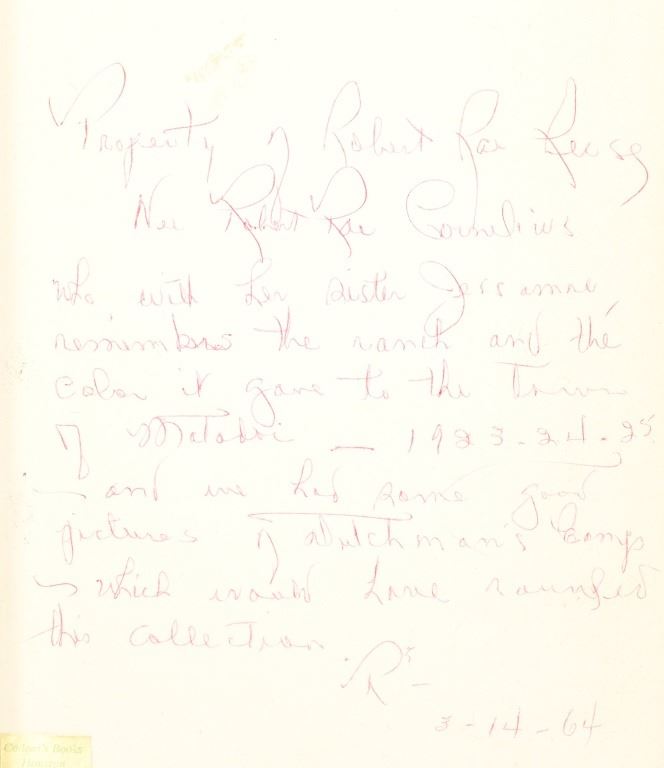 Property of Robert Rae Reese
Nee Robert Rae Cornelius
who with her sister Jessamne
remembers the ranch and the
color it gave to the Town
of Matador — 1923-24-25
— and we had some good
pictures of Dutchman's Camp
— which would have rounded
this collection.
R
3-14-64
Books
Houston